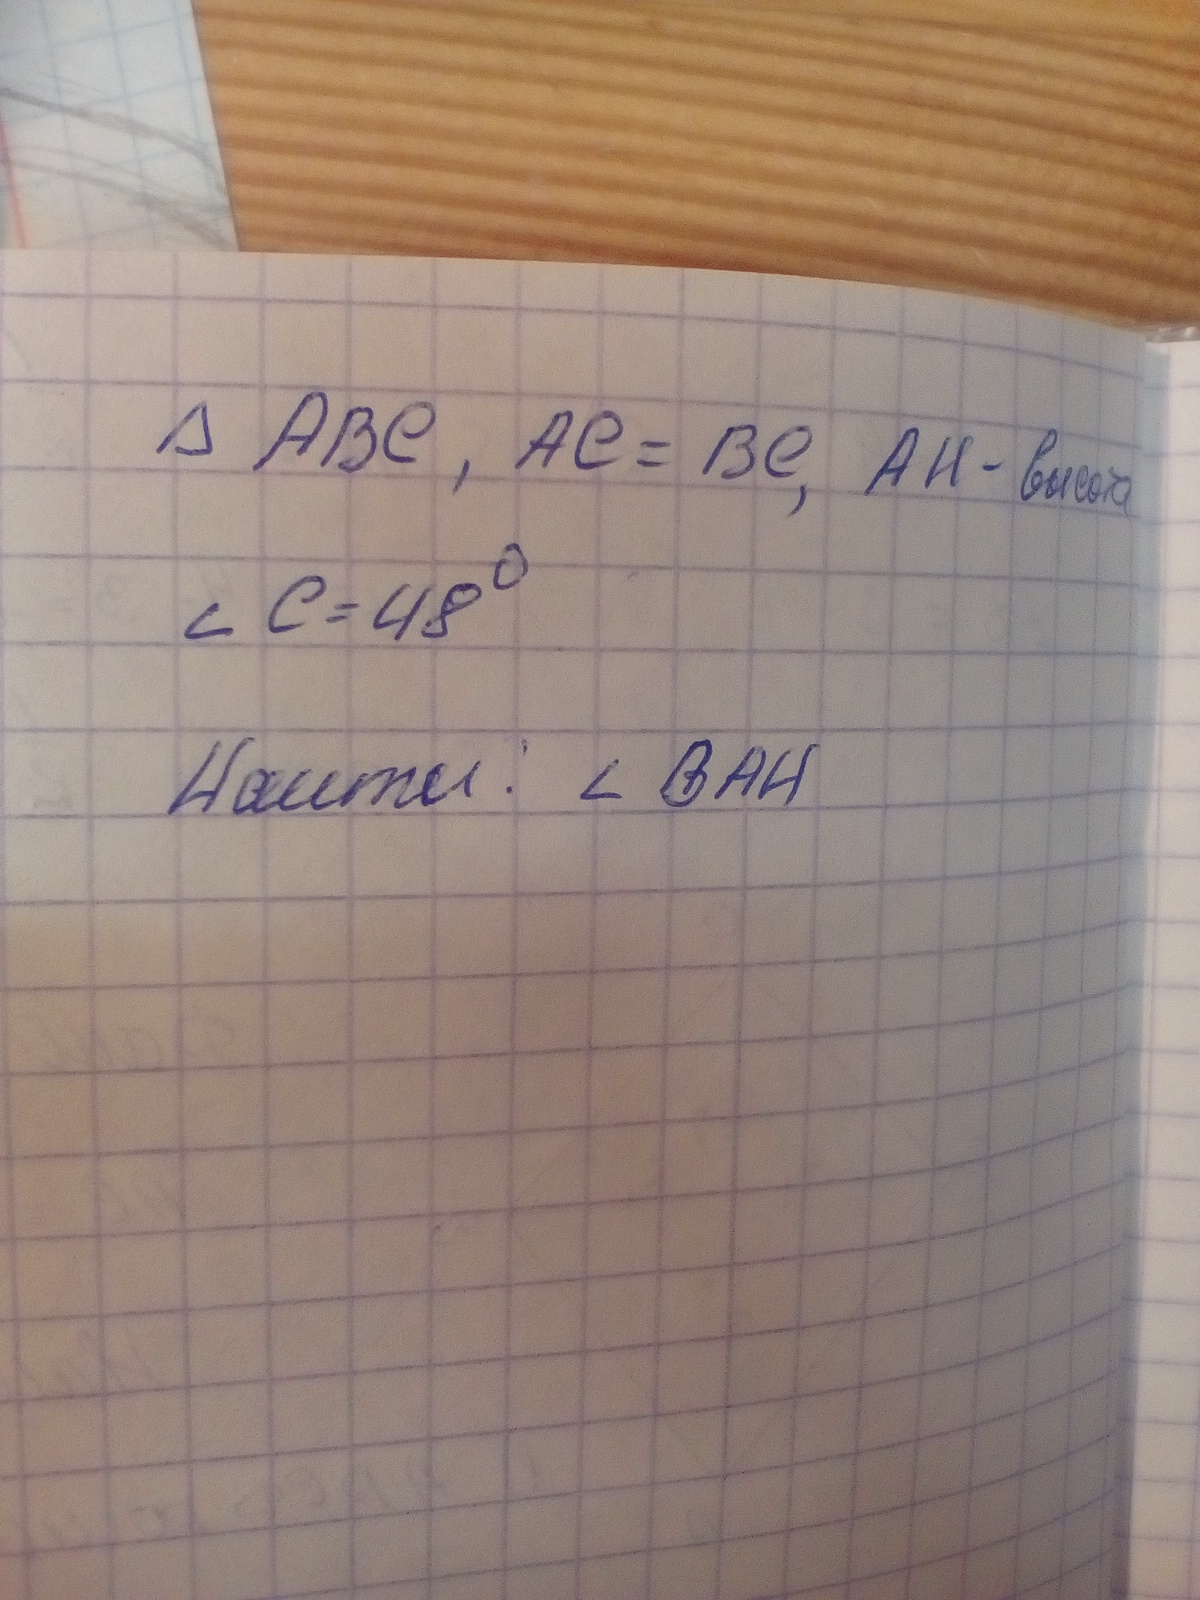 Δ ABC, AC = BC, AH - высота
∠ C = 48°
Найти: ∠ BAH